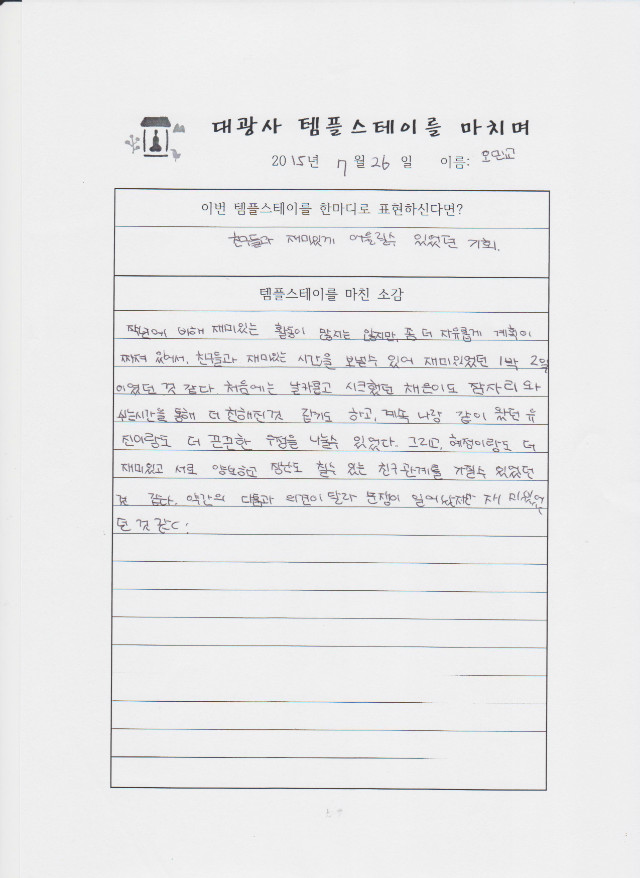 대광사 템플스테이를 마치며
2015년 7월 26일 이름: 오민교
이번 템플스테이를 한마디로 표현하신다면?
친구들과 재미있게 어울릴수 있었던 기회.
템플스테이를 마친 소감
작년에 비해 재미있는 활동이 많지는 않지만, 좀 더 자유롭게 계획이
짜져 있어서, 친구들과 재미있는 시간을 보낼수 있어 재미있었던 1박 2일
이었던 것 같다. 처음에는 날카롭고 시크했던 채은이도 잠자리와
쉬는시간을 통해 더 친해진것 같기도 하고, 계속 나랑 같이 왔던 유
진이랑도 더 끈끈한 우정을 나눌수 있었다. 그리고, 혜정이랑도 더
재미있고 서로 양보하고 장난도 칠수 있는 친구관계를 가질수 있었던
것 같다. 약간의 다툼과 의견이 달라 논쟁이 일어났지만 재미있었
던 것 같다!